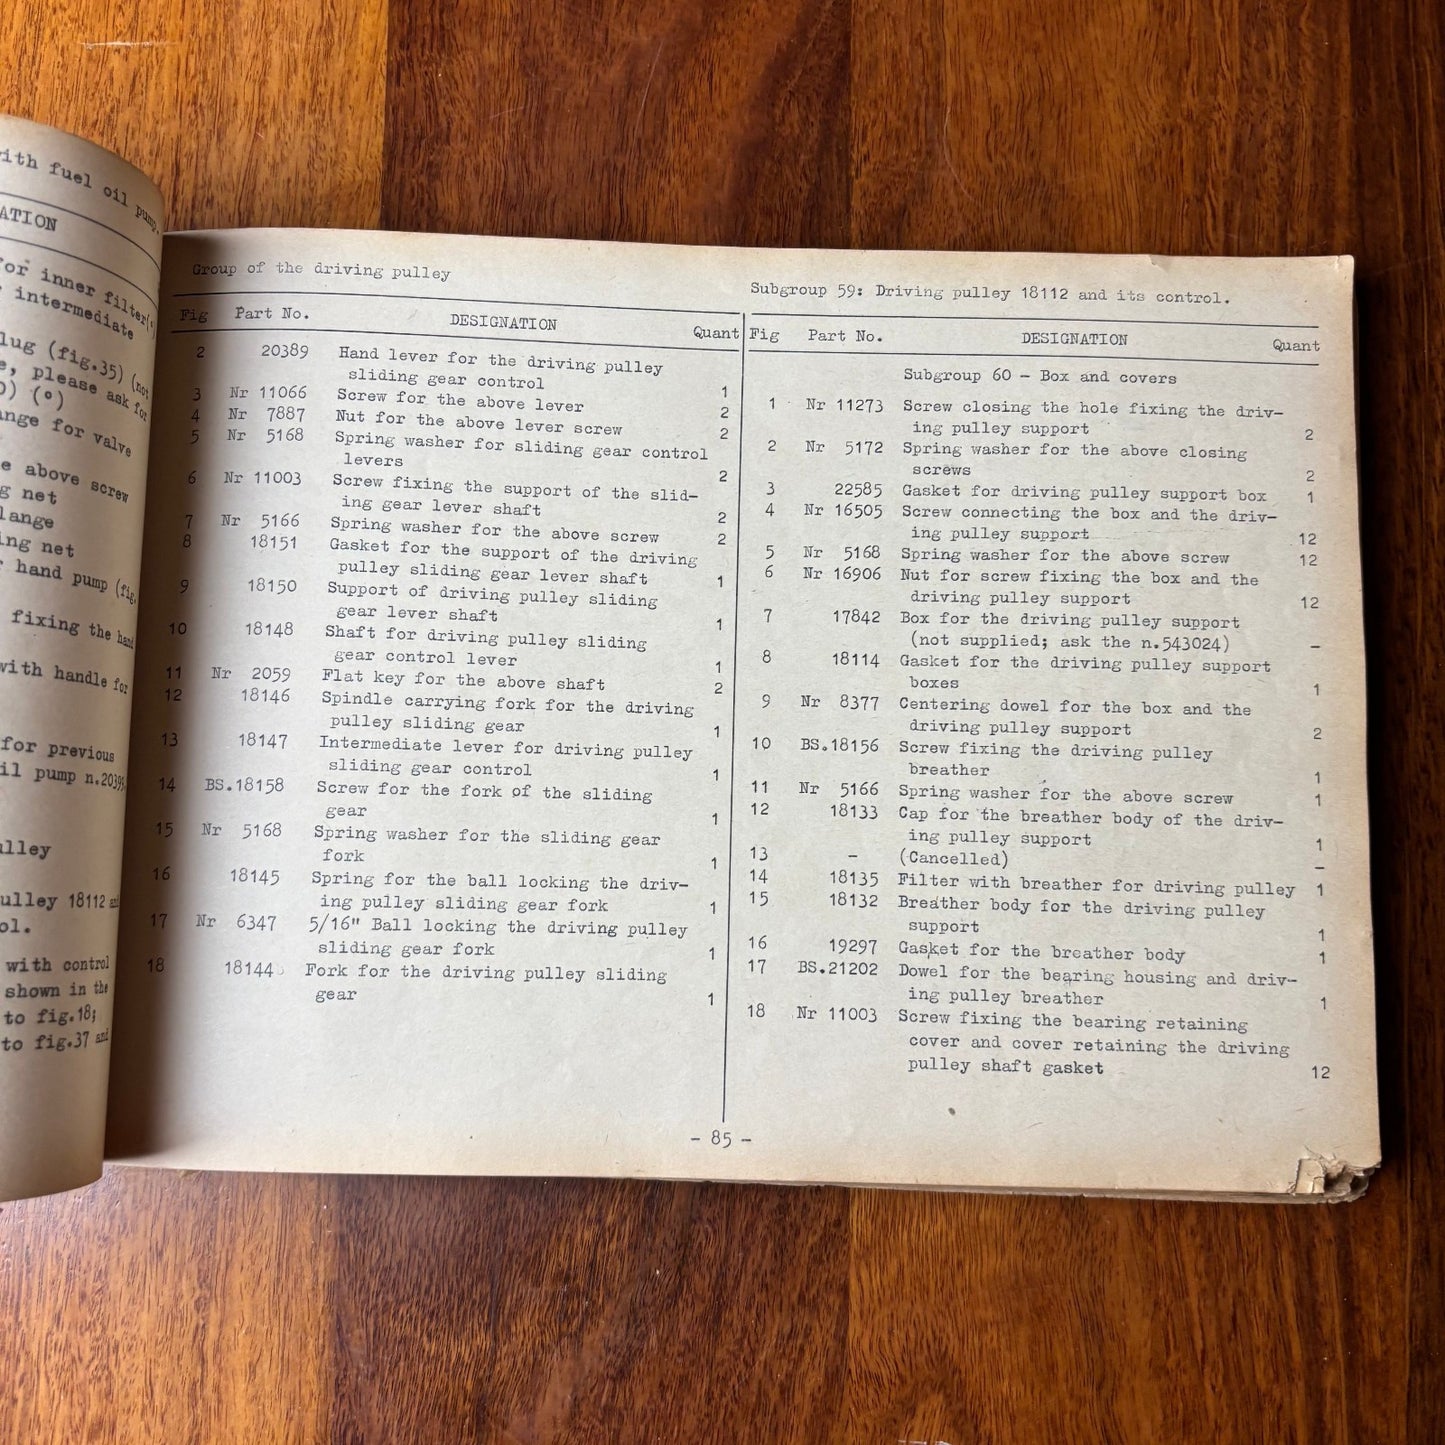 with fuel oil pump.
ATION
or inner filter(°)
intermediate
lug (fig.35) (not
e, please ask for
0) (°)
ange for valve
e above screw
g net
lange
ing net
r hand pump (fig.
fixing the hand
with handle for
for previous
il pump n.20395
lley
ulley 18112 and
ol.
with control
shown in the
to fig.18;
to fig.37 and
Group of the driving pulley
Subgroup 59: Driving pulley 18112 and its control.
Fig Part No. DESIGNATION Quant
2 20389 Hand lever for the driving pulley
sliding gear control 1
3 Nr 11066 Screw for the above lever 2
4 Nr 7887 Nut for the above lever screw 2
5 Nr 5168 Spring washer for sliding gear control
levers 2
6 Nr 11003 Screw fixing the support of the slid-
ing gear lever shaft 2
7 Nr 5166 Spring washer for the above screw 2
8 18151 Gasket for the support of the driving
pulley sliding gear lever shaft 1
9 18150 Support of driving pulley sliding
gear lever shaft 1
10 18148 Shaft for driving pulley sliding
gear control lever 1
11 Nr 2059 Flat key for the above shaft 2
12 18146 Spindle carrying fork for the driving
pulley sliding gear 1
13 18147 Intermediate lever for driving pulley
sliding gear control 1
14 BS.18158 Screw for the fork of the sliding
gear 1
15 Nr 5168 Spring washer for the sliding gear
fork 1
16 18145 Spring for the ball locking the driv-
ing pulley sliding gear fork 1
17 Nr 6347 5/16" Ball locking the driving pulley
sliding gear fork 1
18 18144 Fork for the driving pulley sliding
gear 1
Fig Part No. DESIGNATION Quant
Subgroup 60 - Box and covers
1 Nr 11273 Screw closing the hole fixing the driv-
ing pulley support 2
2 Nr 5172 Spring washer for the above closing
screws 2
3 22585 Gasket for driving pulley support box 1
4 Nr 16505 Screw connecting the box and the driv-
ing pulley support 12
5 Nr 5168 Spring washer for the above screw 12
6 Nr 16906 Nut for screw fixing the box and the
driving pulley support 12
7 17842 Box for the driving pulley support
(not supplied; ask the n.543024) -
8 18114 Gasket for the driving pulley support
boxes 1
9 Nr 8377 Centering dowel for the box and the
driving pulley support 2
10 BS.18156 Screw fixing the driving pulley
breather 1
11 Nr 5166 Spring washer for the above screw 1
12 18133 Cap for the breather body of the driv-
ing pulley support 1
13 - (Cancelled) -
14 18135 Filter with breather for driving pulley 1
15 18132 Breather body for the driving pulley
support 1
16 19297 Gasket for the breather body 1
17 BS.21202 Dowel for the bearing housing and driv-
ing pulley breather 1
18 Nr 11003 Screw fixing the bearing retaining
cover and cover retaining the driving
pulley shaft gasket 12
- 85 -